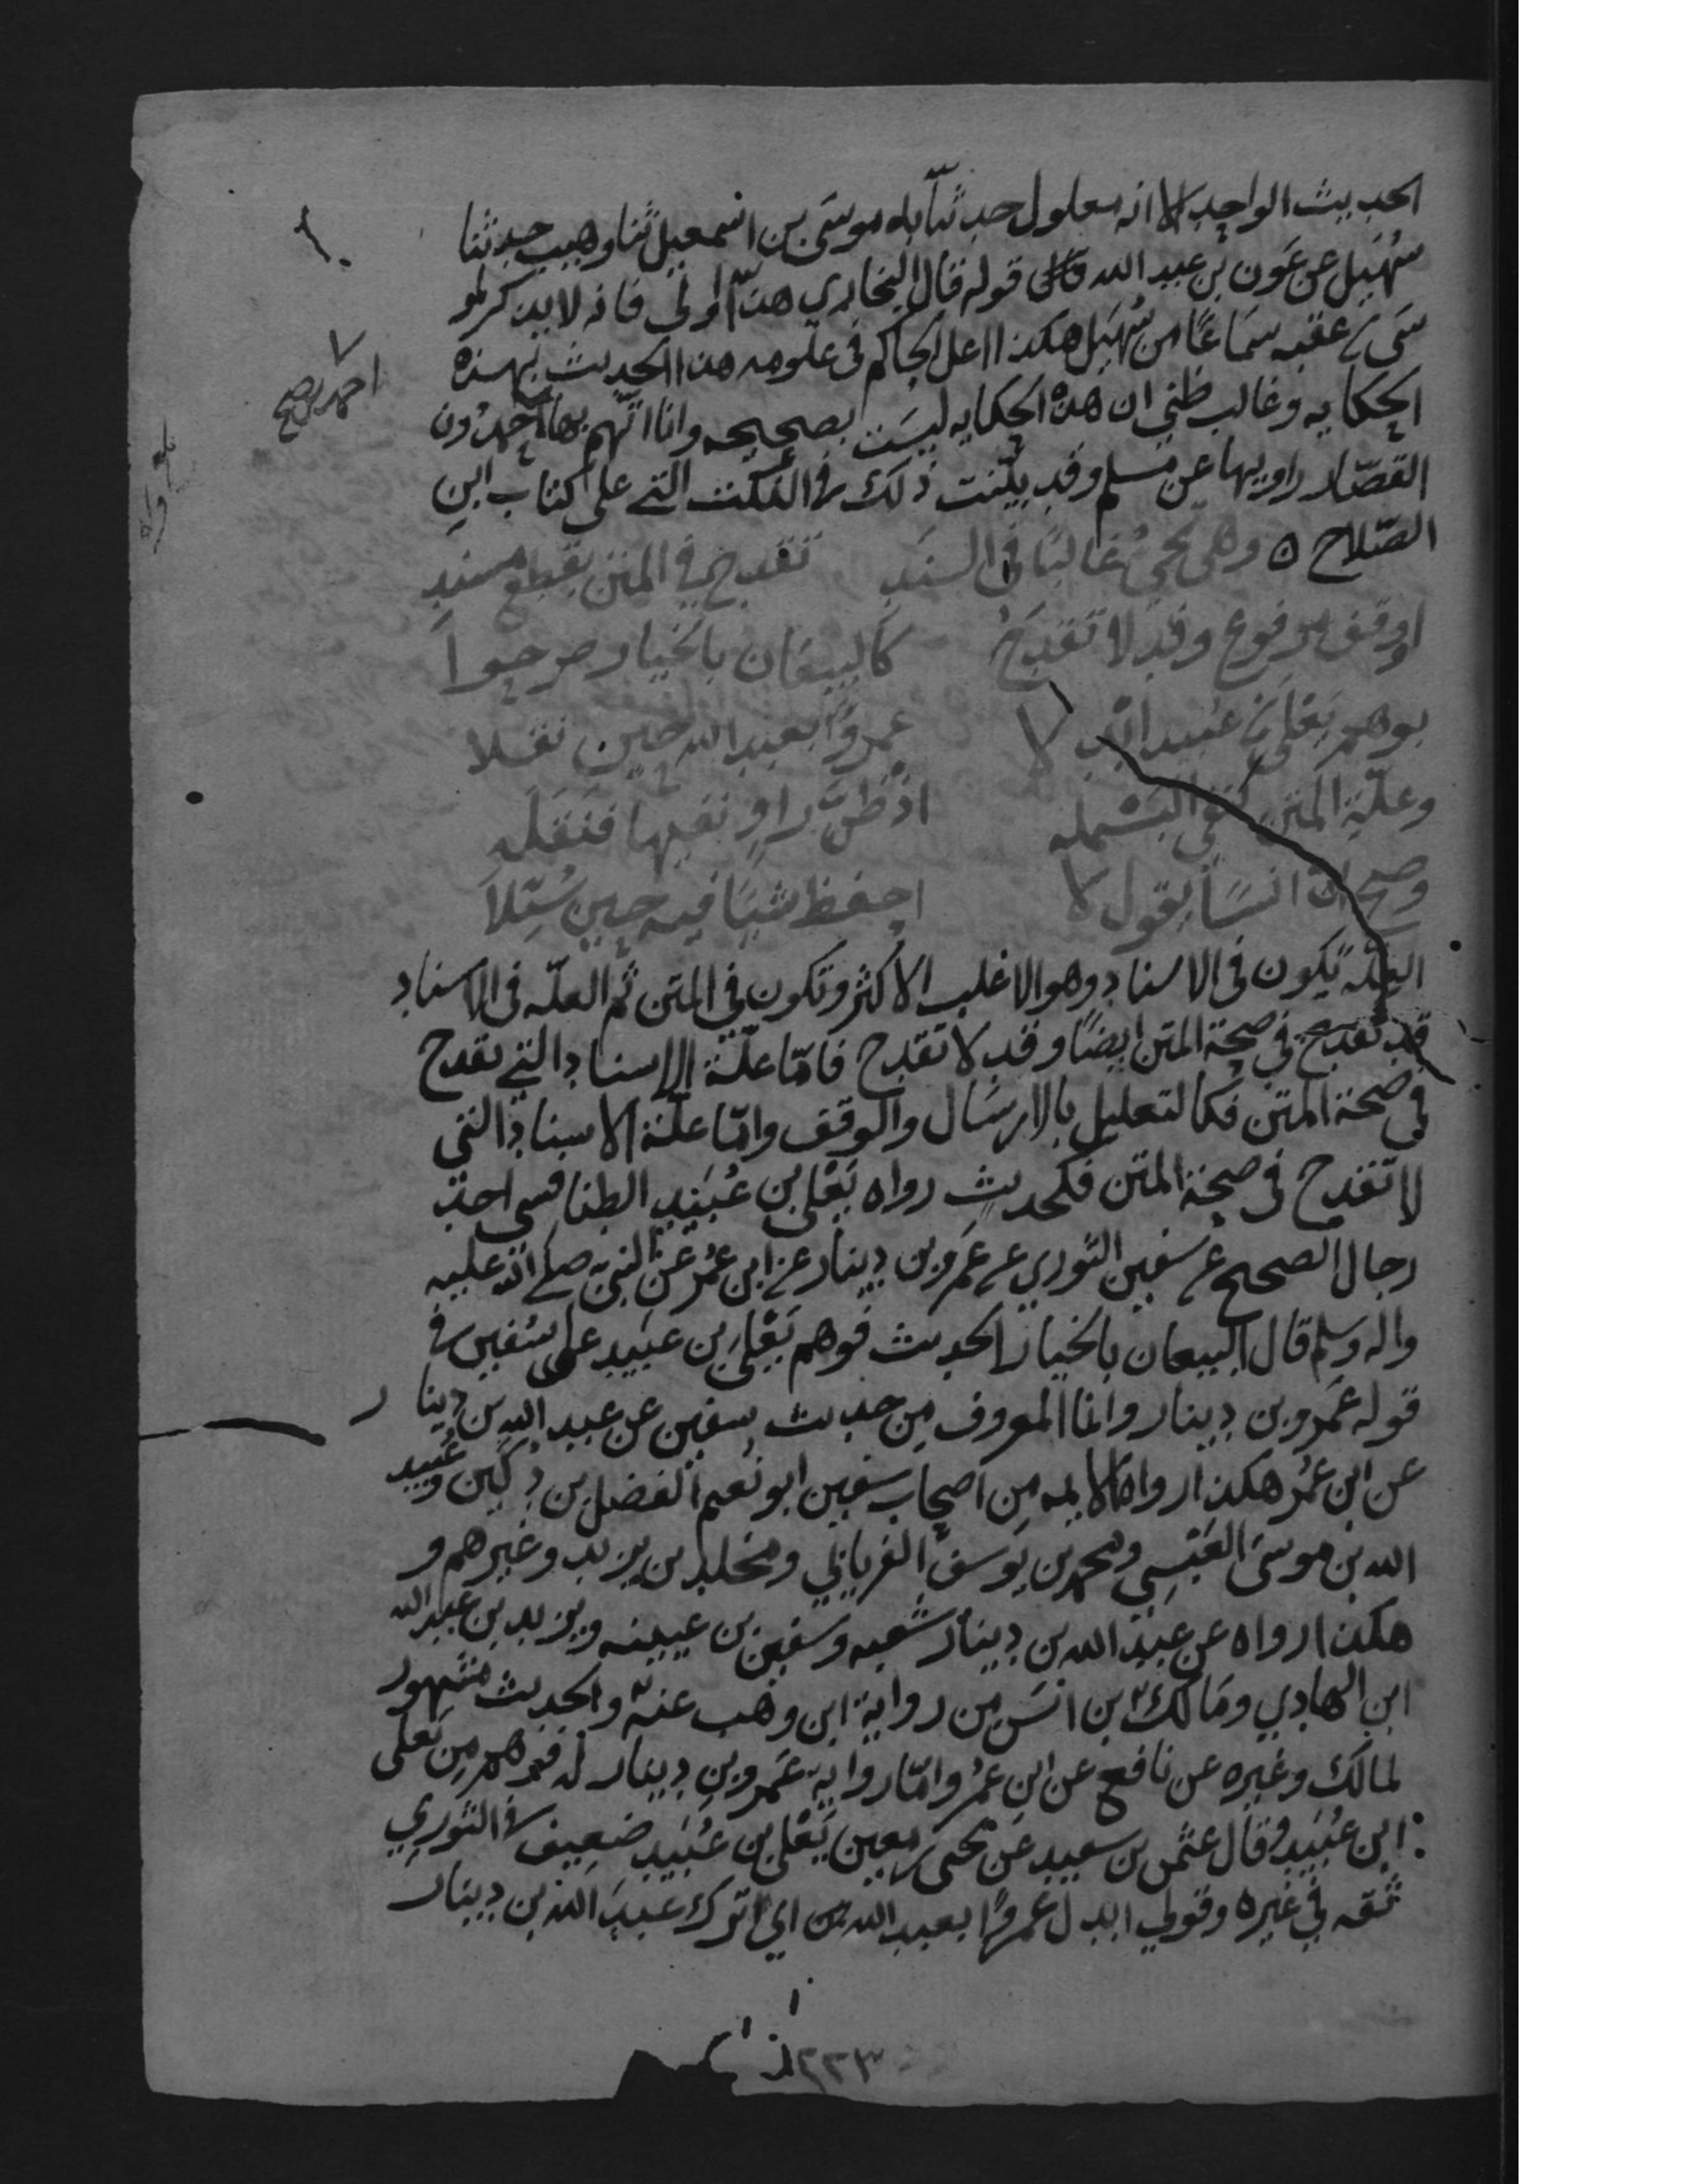 الحديث الواحد الا انه معلول حدثنا به موسى بن اسمعيل ثنا وهيب حدثنا
سُهَيل عن عَون بن عبد الله قوله قال البخاري هذا اولى فانه لا يذكر لمو
سى بن عقبه سماعًا من سُهَيل هكذا اعل الحاكم في علومه هذا الحديث بهذه
الحكايه وغالب ظني ان هذه الحكايه ليست بصحيحه وانا اتّهم بها احمد بن حمدون
القصّار راويها عن مسلم وقد بيّنت ذلك في النكت التي على كتاب ابن
الصّلاح ٥ وهي تجئُ غالبًا في السندِ تقدح في المتن بقطع مسندِ
اووقف مرفوع وقد لا تقدحُ كالبيعان بالخيار صرحوا
بوهم يَعْلى بن عُبيد ابْدلا عمروًا بعبد الله حين نقلا
وعلّة المتن كنفي البَسْمله اذ ظنَّ راوٍ نفيها فنقلَه
وصحَّ انّ انسًا يقول لا احفظ شيئا فيه حين سُئلا
العلّه تكون في الاسناد وهو الاغلب الاكثر وتكون في المتن ثم العلّه في الاسناد
قد تقدح في صحة المتن ايضًا وقد لا تقدح فامّا علّة الاسناد التي تقدح
في صحة المتن فكالتعليل بالارسال والوقف وامّا علّة الاسناد التي
لا تقدح في صحة المتن فكحديثٍ رواه يَعْلى بن عُبَيد الطنافسي احد
رجال الصحيح عن سفين الثوري عن عَمرو بن دينار عن ابن عُمر عن النبي صلى الله عليه
واله وسلم قال البيعان بالخيار الحديث فوهم يَعْلى بن عبَيد على سُفين في
قوله عَمرو بن دينار وانما المعروف من حديث سفين عن عبد الله بن دينار
عن ابن عُمر هكذا رواه الايمه من اصحاب سفين ابو نُعيم الفضل بن دُكَين وعُبيد
الله بن موسى العَبْسِي ومحمد بن يوسف الفريابي ومخلد بن يزيد وغيرهم و
هكذا رواه عن عبد الله بن دينار شعبه وسفين بن عيينه ويزيد بن عبد الله
ابن الهادي ومالك بن انس من رواية ابن وهب عنه والحديث مشهور
لمالك وغيره عن نافع عن ابن عُمر وامّا رواية عَمرو بن دينار له فوهم من يَعلى
ابن عُبَيد وقال عثمن بن سعيد عن يحيى بن معين يَعْلى بن عُبَيد ضعيف في الثوري
ثقه في غيره وقولي ابدل عمروًا بعبد الله بن اي اترك عبدَ الله بن دينار